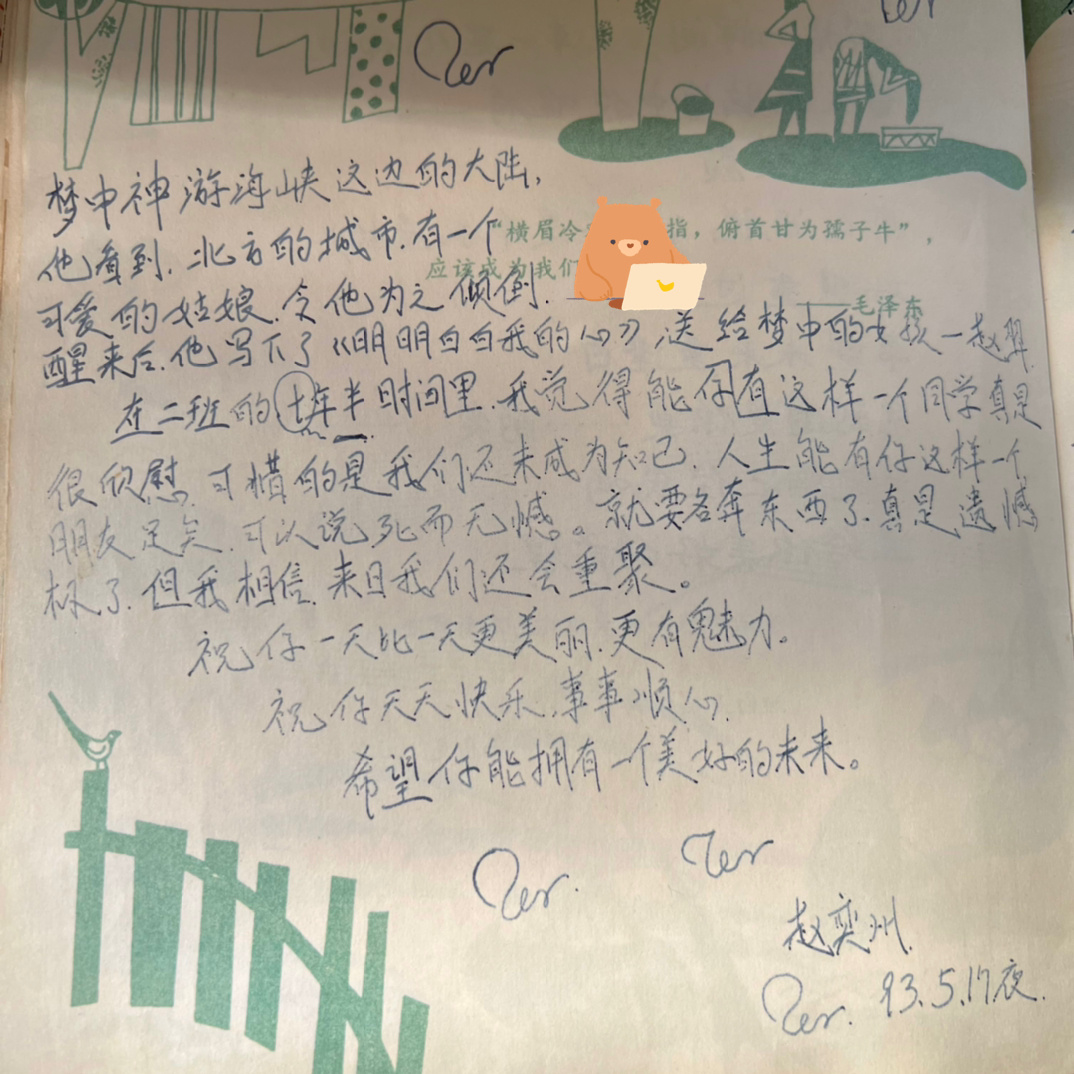 梦中神游海峡这边的大陆,
他看到.北方的城市.有一个
可爱的姑娘.令他为之倾倒.
醒来后.他写下了《明明白白我的心》,送给梦中的女孩—赵翠.
“横眉冷 指,俯首甘为孺子牛”,
应该成为我们
——毛泽东
在二班的 年半时间里.我觉得能有这样一个同学真是
很欣慰.可惜的是我们还未成为知己.人生能有你这样一个
朋友足矣.可以说死而无憾。就要各奔东西了.真是遗憾
极了.但我相信.来日我们还会重聚。
祝你一天比一天更美丽.更有魅力。
祝你天天快乐.事事顺心.
希望你能拥有一个美好的未来。
赵奕州.
93.5.17夜.